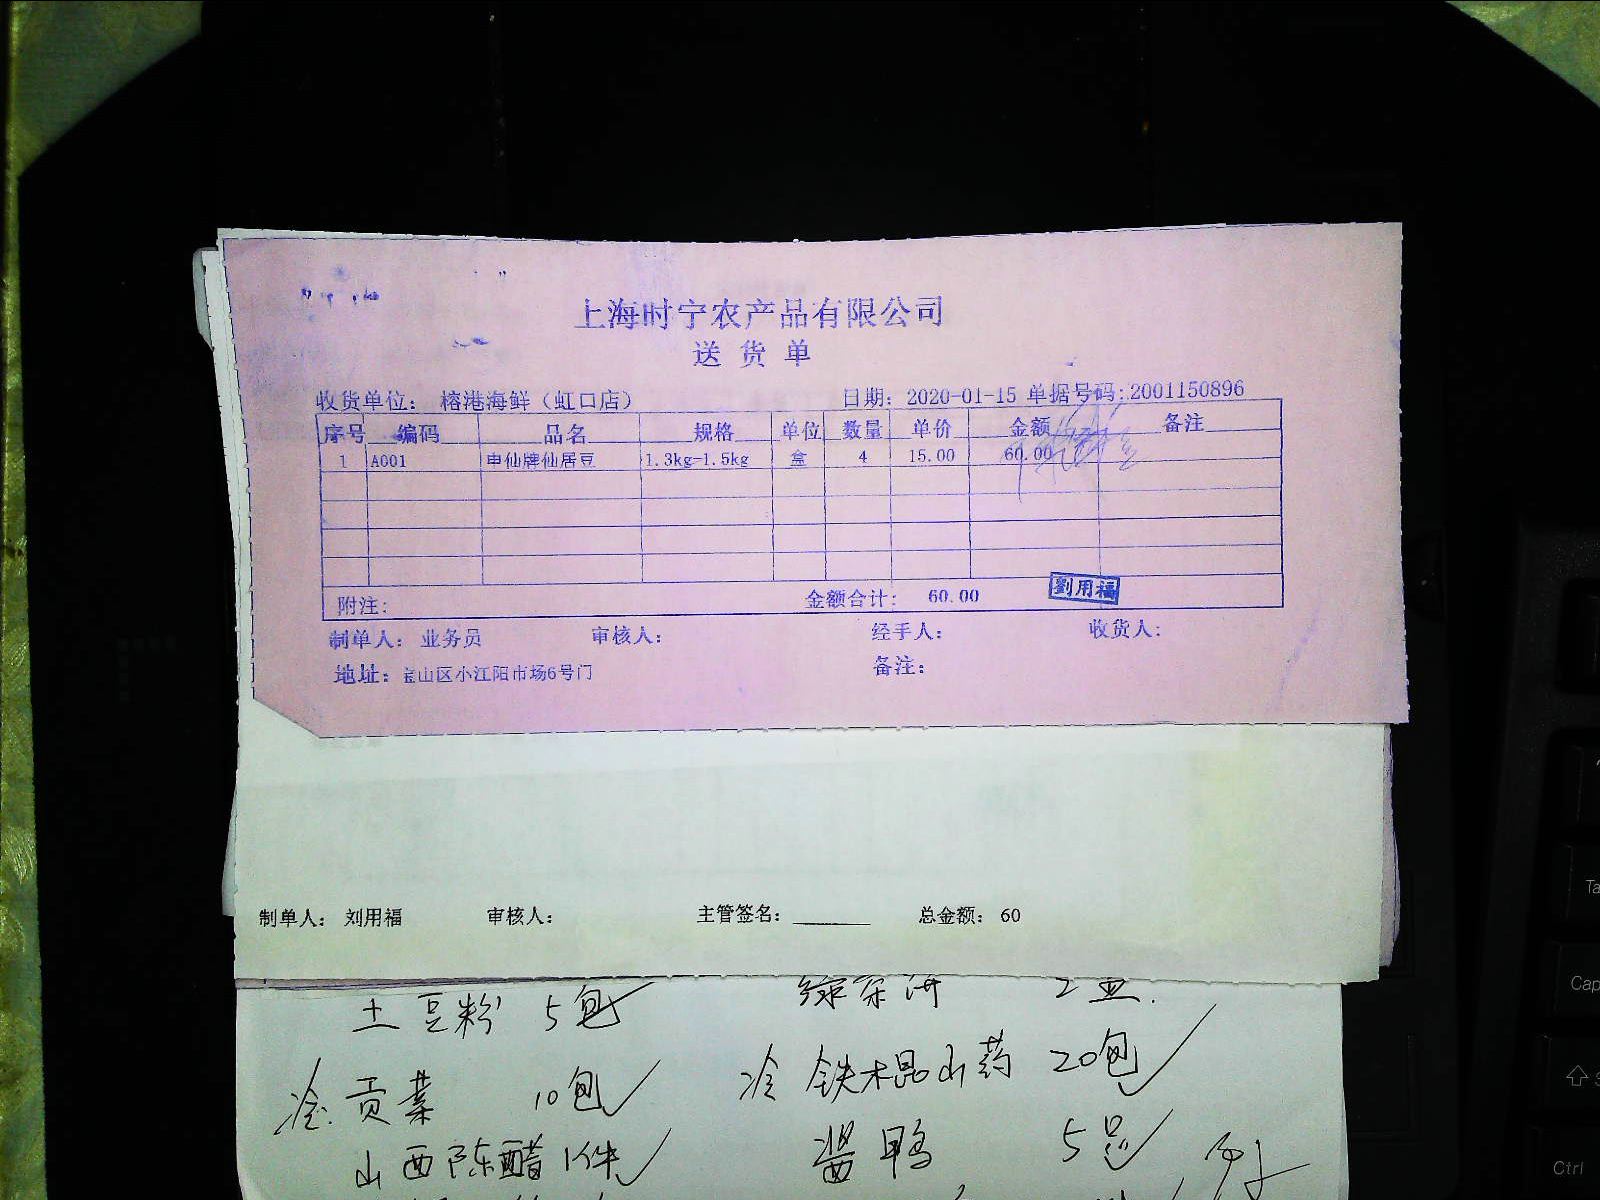 上海时宁农产品有限公司
送货单
收货单位： 榕港海鲜（虹口店） 日期：2020-01-15 单据号码:2001150896
序号 编码 品名 规格 单位 数量 单价 金额 备注
1 A001 申仙牌仙居豆 1.3kg-1.5kg 盒 4 15.00 60.00
附注: 金额合计： 60.00 劉用福
制单人： 业务员 审核人: 经手人: 收货人:
地址：宝山区小江阳市场6号门 备注:
制单人： 刘用福 审核人: 主管签名: 总金额： 60
土豆粉 5包 2盒
冷 贡菜 10包 冷 铁棍山药 20包
山西陈醋 1件 酱鸭 5只
Cap
Ctrl